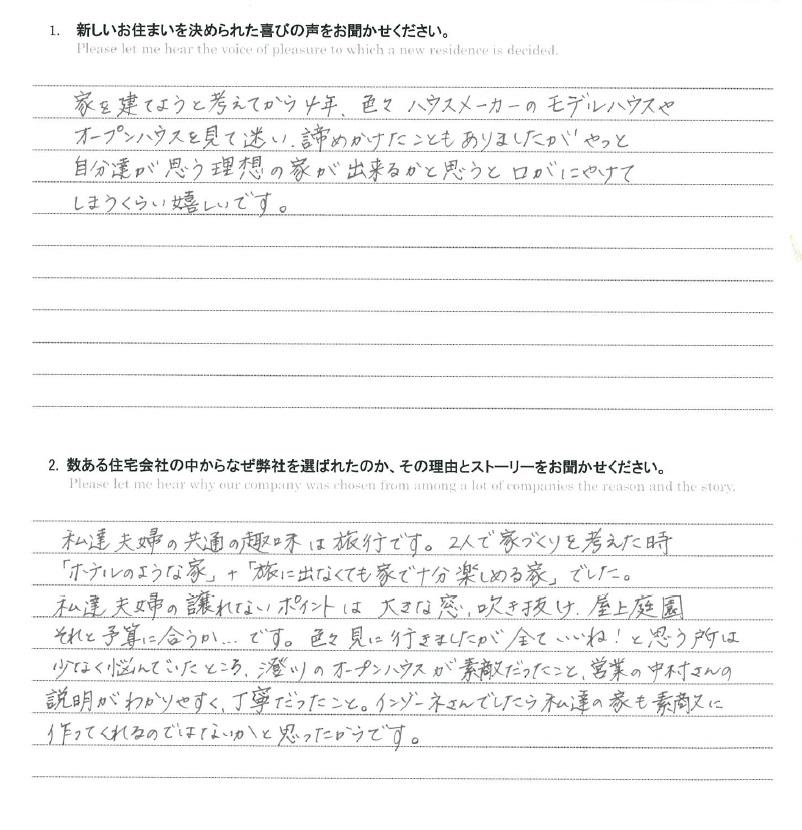 1. 新しいお住まいを決められた喜びの声をお聞かせください。
Please let me hear the voice of pleasure to which a new residence is decided.
家を建てようと考えてから4年、色々ハウスメーカーのモデルハウスや
オープンハウスを見て迷い、諦めかけたこともありましたがやっと
自分達が思う理想の家が出来るかと思うと口がにやけて
しまうくらい嬉しいです。
2. 数ある住宅会社の中からなぜ弊社を選ばれたのか、その理由とストーリーをお聞かせください。
Please let me hear why our company was chosen from among a lot of companies the reason and the story.
私達夫婦の共通の趣味は旅行です。2人で家づくりを考えた時
「ホテルのような家」+「旅に出なくても家で十分楽しめる家」でした。
私達夫婦の譲れないポイントは大きな窓、吹き抜け、屋上庭園
それと予算に合うか…です。色々見に行きましたが全ていいね!と思う所は
少なく悩んでいたところ、澄川のオープンハウスが素敵だったこと、営業の中村さんの
説明がわかりやすく、丁寧だったこと。インゾーネさんでしたら私達の家も素敵に
作ってくれるのではないかと思ったからです。